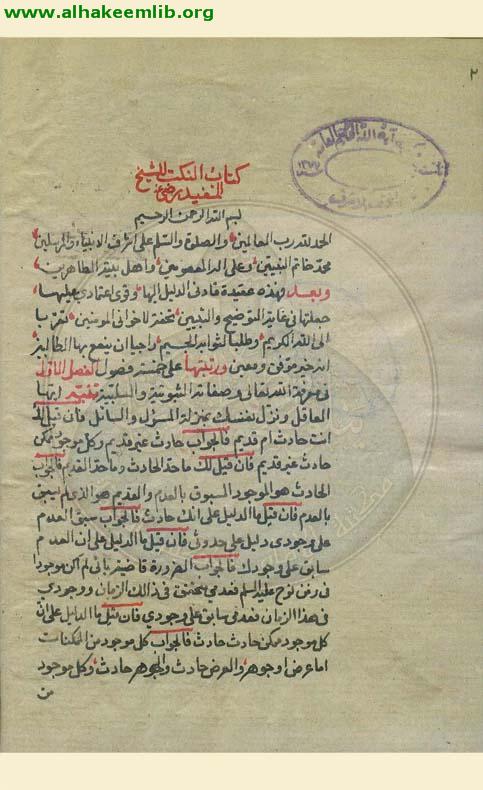 www.alhakeemlib.org
٢
كتاب النكت للشيخ
المفيد رضي عنه
بسم الله الرحمن الرحيم
الحمد لله رب العالمين والصلوة والسلم على اشرف الانبياء والمرسلين
محمد خاتم النبيين وعلى اله المعصومين واهل بيته الطاهرين
وبعــد فهذه عقيدة قادني الدليل اليها وقوى اعتمادي عليهــا
جعلتها في غاية التوضيح والتبيين تحفة لاخواني المومنين تقربا
الى الله الكريم وطلبا لثوابه الجسيم راجيا ان ينفع بها الطالبين
انه خير موفق ومعين ورتبتها على خمسة فصول الفصل الاول
في معرفة الله تعالى وصفاته الثبوتية والسلبية تنبيه ايها
العاقل ونزل نفسك بمنزلة المسؤل والسائل فان قيل لك
انت حادث ام قديم فالجواب حادث غير قديم وكل موجود ممكن
حادث غير قديم فان قيل لك ما حد الحادث وما حد القديم فالجواب
الحادث هو الموجود المسبوق بالعدم والقديم هو الذي لم يسبق
بالعدم فان قيل ما الدليل على انك حادث فالجواب سبق العدم
على وجودي دليل على حدوثي فان قيل ما الدليل على ان العدم
سابق على وجودك فالجواب الضرورة قاضية باني لم اكن موجود
في زمن نوح عليه السلم فعدمي تحقق في ذالك الزمان ووجودي
في هذا الزمان فعدمي سابق على وجودي فان قيل ما الدليل على ان
كل موجود ممكن حادث حادث فالجواب كل موجود من الممكنات
اما عرض او جوهر والعرض حادث والجوهر حادث وكل موجود
من